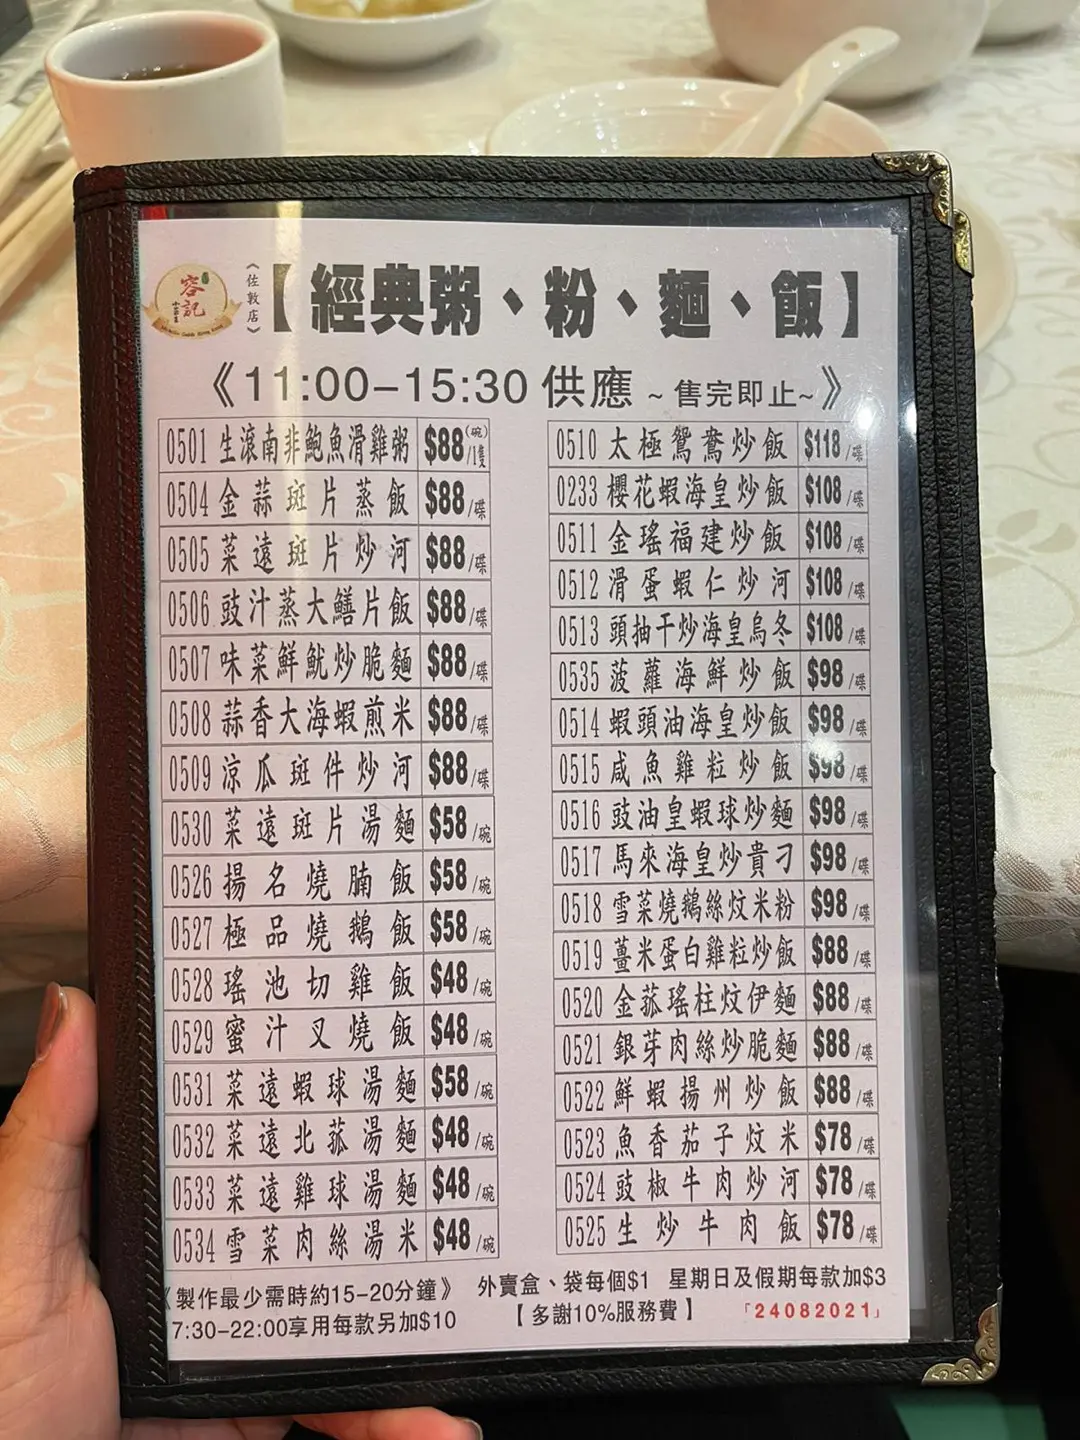 容記
《佐敦店》
【經典粥、粉、麵、飯】
《11:00-15:30 供應 ~售完即止~》
0501 生滾南非鮑魚滑雞粥 $88(碗)/1隻
0504 金蒜斑片蒸飯 $88/碟
0505 菜遠斑片炒河 $88/碟
0506 豉汁蒸大鱔片飯 $88/碟
0507 味菜鮮魷炒脆麵 $88/碟
0508 蒜香大海蝦煎米 $88/碟
0509 涼瓜斑件炒河 $88/碟
0530 菜遠斑片湯麵 $58/碗
0526 揚名燒腩飯 $58/碗
0527 極品燒鵝飯 $58/碗
0528 瑤池切雞飯 $48/碗
0529 蜜汁叉燒飯 $48/碗
0531 菜遠蝦球湯麵 $58/碗
0532 菜遠北菰湯麵 $48/碗
0533 菜遠雞球湯麵 $48/碗
0534 雪菜肉絲湯米 $48/碗
0510 太極鴛鴦炒飯 $118/碟
0233 櫻花蝦海皇炒飯 $108/碟
0511 金瑤福建炒飯 $108/碟
0512 滑蛋蝦仁炒河 $108/碟
0513 頭抽干炒海皇烏冬 $108/碟
0535 菠蘿海鮮炒飯 $98/碟
0514 蝦頭油海皇炒飯 $98/碟
0515 咸魚雞粒炒飯 $98/碟
0516 豉油皇蝦球炒麵 $98/碟
0517 馬來海皇炒貴刁 $98/碟
0518 雪菜燒鵝絲炆米粉 $98/碟
0519 薑米蛋白雞粒炒飯 $88/碟
0520 金菰瑤柱炆伊麵 $88/碟
0521 銀芽肉絲炒脆麵 $88/碟
0522 鮮蝦揚州炒飯 $88/碟
0523 魚香茄子炆米 $78/碟
0524 豉椒牛肉炒河 $78/碟
0525 生炒牛肉飯 $78/碟
《製作最少需時約15-20分鐘》 外賣盒、袋每個$1 星期日及假期每款加$3
7:30-22:00享用每款另加$10 【多謝10%服務費】 「24082021」